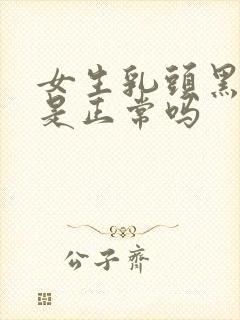 女生乳頭黑
是正常吗
公子齊